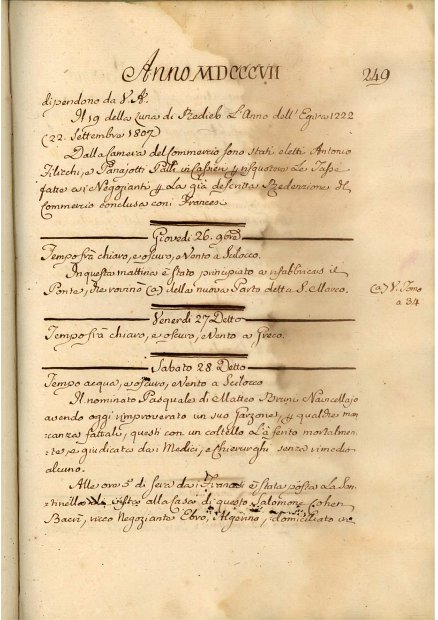 Anno MDCCCVII
249
dipendono da V. A.
Il 19 della Luna di Redieb L'Anno dell'Egira 1222
(22. Settembre 1807
Dalla Camera del Commercio sono stati eletti Antonio
Filichi, e Panajotti Palli in Cassieri p risquotere Le Tasse
fatte ai Negozianti p La già descritta Redenzione del
Commercio conclusa con i Francesi
Giovedì 26. 9bre
Tempo frà chiaro, e oscuro, e Vento a Scilocco.
In questa mattina è stato principiato a rifabbricas il
Ponte, che rovinò (a) della nuova Porta detta S. Marco.
(a) V. Tomo
a 34
Venerdì 27 Detto
Tempo frà chiaro, e oscuro, e Vento a Greco.
Sabato 28 Detto
Tempo acqua, e oscuro, e Vento a Scilocco
Il nominato Pasquale di Matteo Bruni Navicellajo
avendo oggi rimproverato un suo Garzone, p qualche man
canza fattali, questi con un coltello L'à ferito mortalmen
te e giudicato dai Medici, e Chierurghi senza rimedio
alcuno.
Alle ore 5 di sera dai Francesi è stata posta La Sen
tinella alla Casa di questo Salomone Cohen
Bacri, ricco Negoziante Ebreo, Algerino, domiciliato in